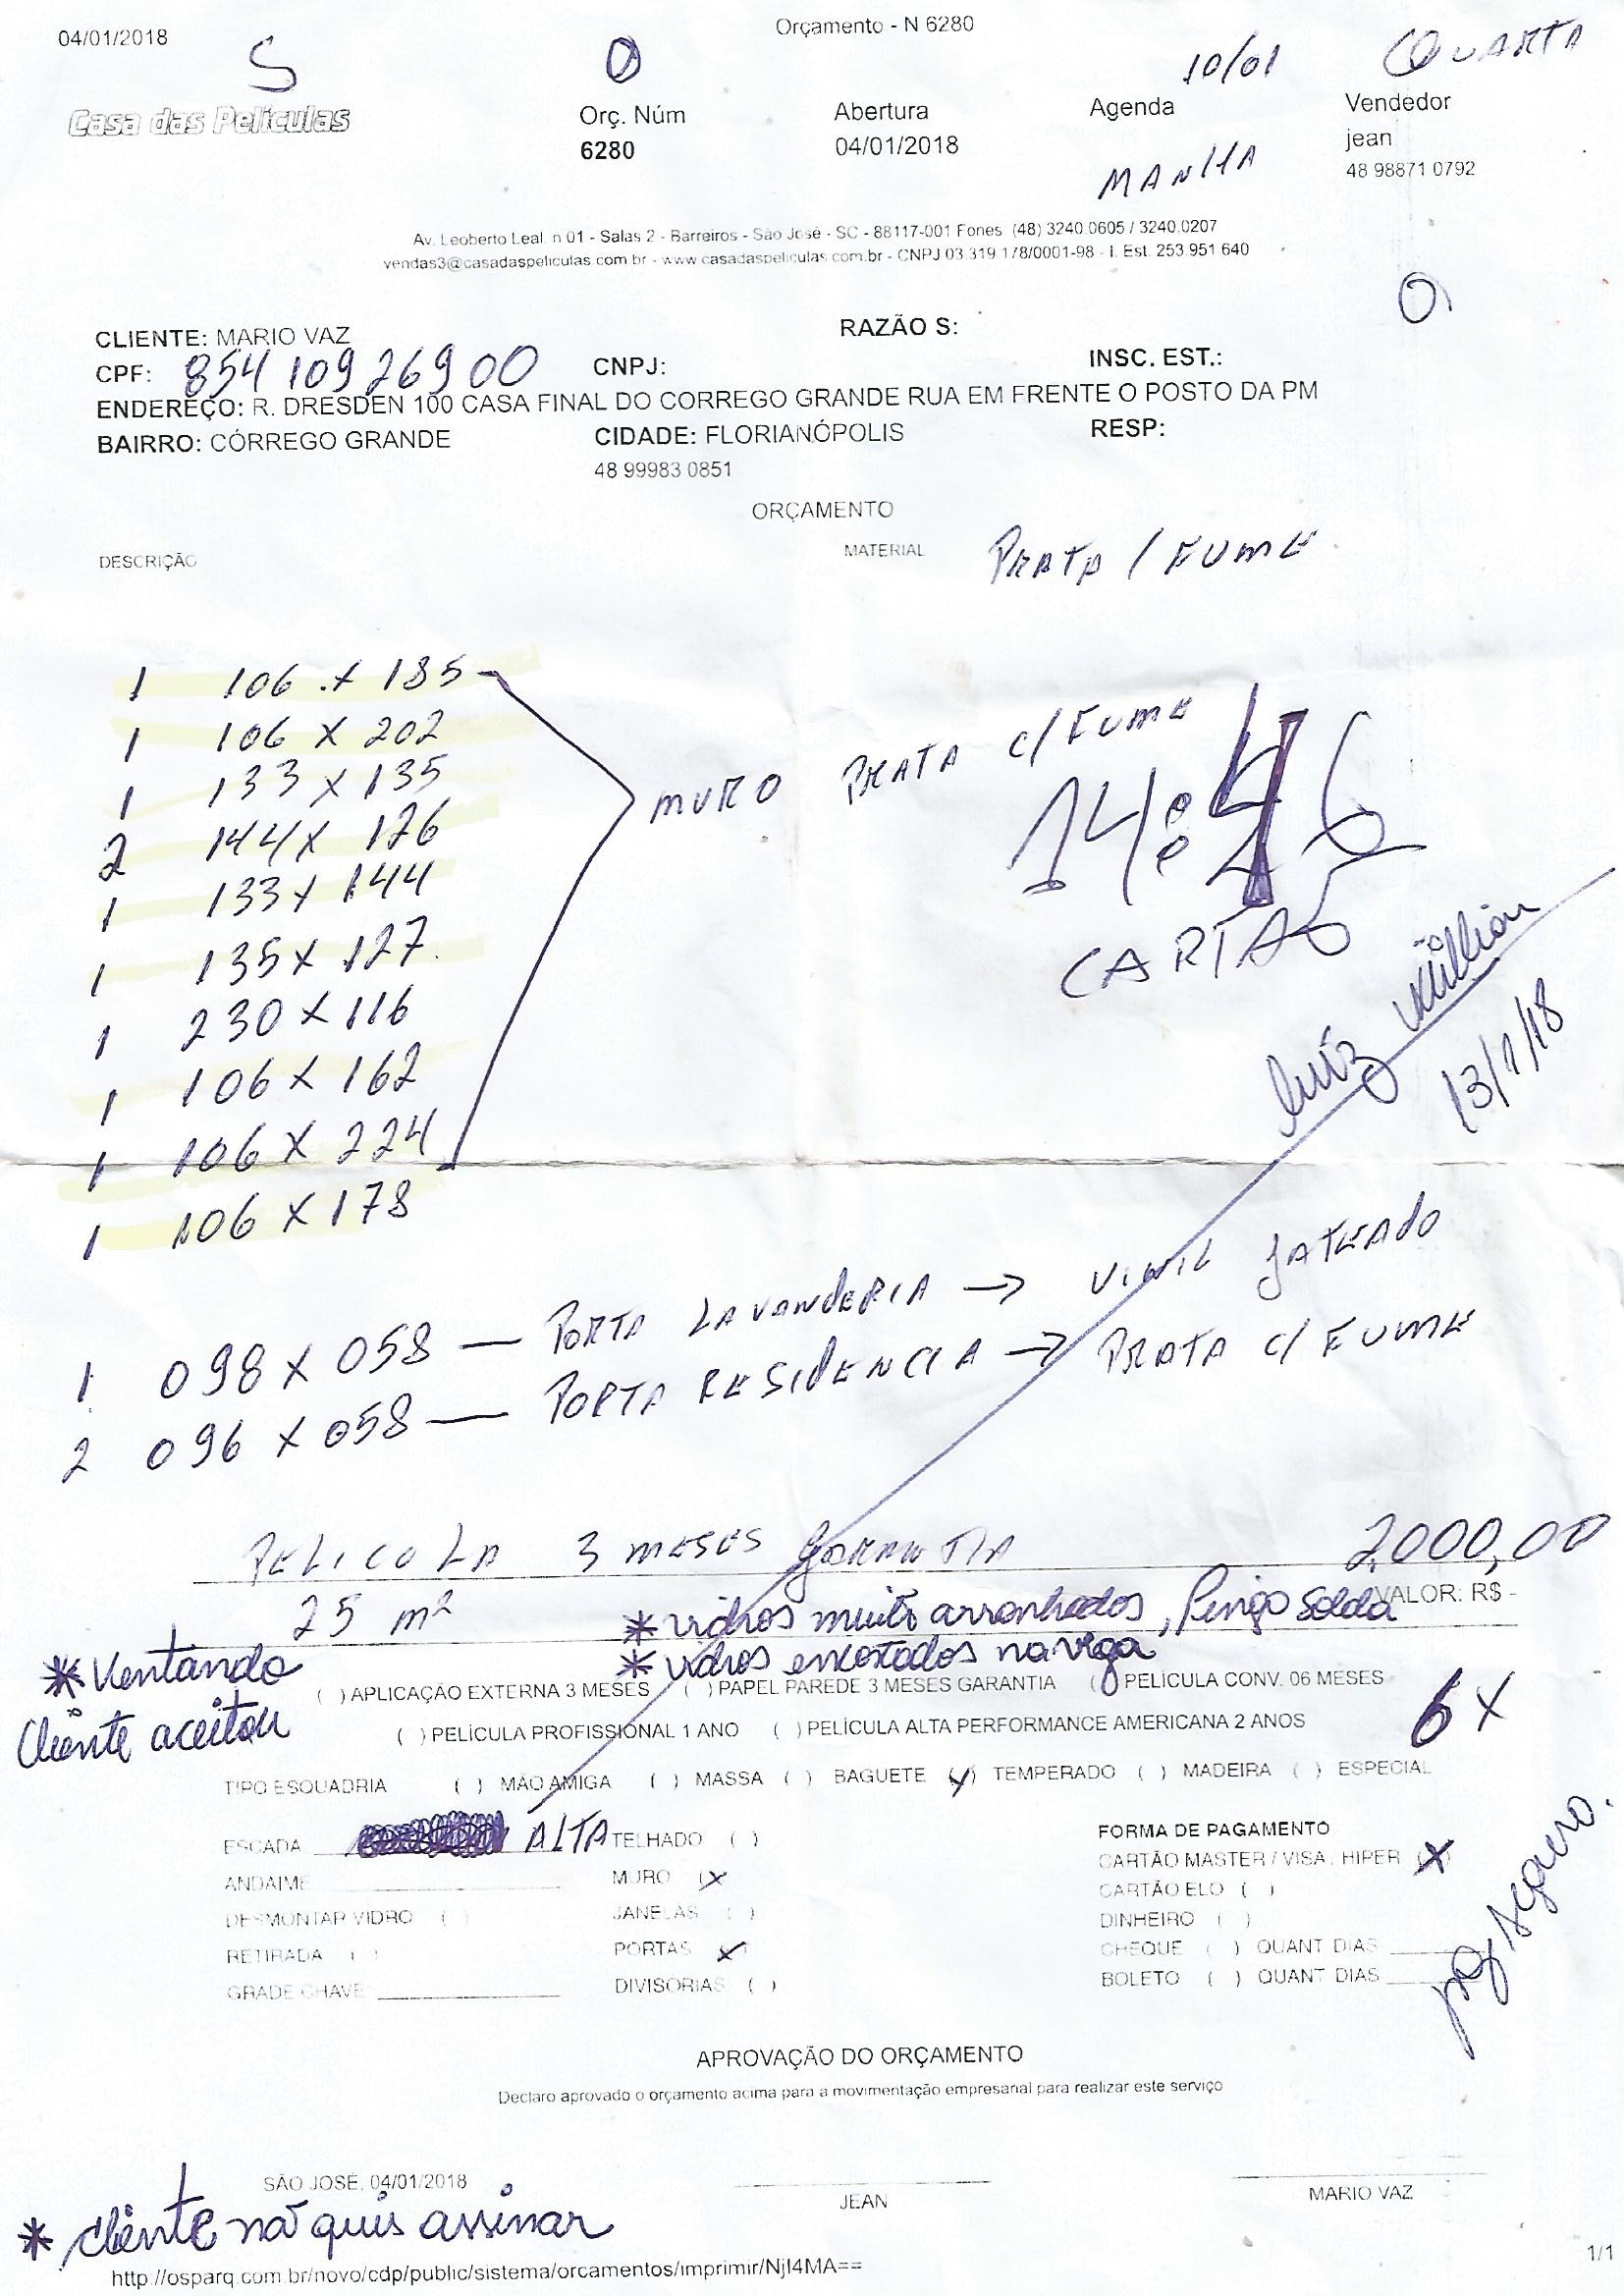 04/01/2018
Orçamento - N 6280
S
O
10/01
QUARTA
Casa das Películas
Orç. Núm
Abertura
Agenda
Vendedor
6280
04/01/2018
MANHA
jean
48 98871 0792
Av. Leoberto Leal. n 01 - Salas 2 - Barreiros - São José - SC - 88117-001 Fones (48) 3240.0605 / 3240.0207
vendas3@casadaspeliculas.com.br - www.casadaspeliculas.com.br - CNPJ 03.319.178/0001-98 - I. Est. 253.951.640
CLIENTE: MARIO VAZ
RAZÃO S:
CPF: 854 109 269 00
CNPJ:
INSC. EST.:
ENDEREÇO: R. DRESDEN 100 CASA FINAL DO CORREGO GRANDE RUA EM FRENTE O POSTO DA PM
BAIRRO: CÓRREGO GRANDE
CIDADE: FLORIANÓPOLIS
RESP:
48 99983 0851
ORÇAMENTO
DESCRIÇÃO
MATERIAL
PRATA / FUME
1 106 x 185
1 106 x 202
1 133 x 135
2 144 x 126
1 133 x 144
1 135 x 127
1 230 x 116
1 106 x 162
1 106 x 224
1 106 x 178
MURO PRATA C/ FUME
CARTÃO
Luiz
13/1/18
1 098 x 058 — PORTA LAVANDERIA → VINIL JATEADO
2 096 x 058 — PORTA RESIDENCIA → PRATA C/ FUME
PELICOLA 3 MESES GARANTIA
2.000,00
25 m²
VALOR: R$ -
* vidros muito arranhados, Pingo Solda
* vidros encostados na viga
* Ventando
Cliente aceitou
( ) APLICAÇÃO EXTERNA 3 MESES ( ) PAPEL PAREDE 3 MESES GARANTIA ( ) PELÍCULA CONV. 06 MESES
( ) PELÍCULA PROFISSIONAL 1 ANO ( ) PELÍCULA ALTA PERFORMANCE AMERICANA 2 ANOS
6x
TIPO ESQUADRIA ( ) MÃO AMIGA ( ) MASSA ( ) BAGUETE (x) TEMPERADO ( ) MADEIRA ( ) ESPECIAL
ESCADA ALTA
TELHADO ( )
FORMA DE PAGAMENTO
ANDAIME
MURO (x)
CARTÃO MASTER / VISA . HIPER (x)
CARTÃO ELO ( )
DESMONTAR VIDRO ( )
JANELAS ( )
DINHEIRO ( )
RETIRADA ( )
PORTAS (x)
CHEQUE ( ) QUANT DIAS
GRADE CHAVE
DIVISORIAS ( )
BOLETO ( ) QUANT DIAS
pagseguro.
APROVAÇÃO DO ORÇAMENTO
Declaro aprovado o orçamento acima para a movimentação empresarial para realizar este serviço
SÃO JOSÉ, 04/01/2018
JEAN
MARIO VAZ
* cliente não quis assinar
http://osparq.com.br/novo/cdp/public/sistema/orcamentos/imprimir/NjI4MA==
1/1